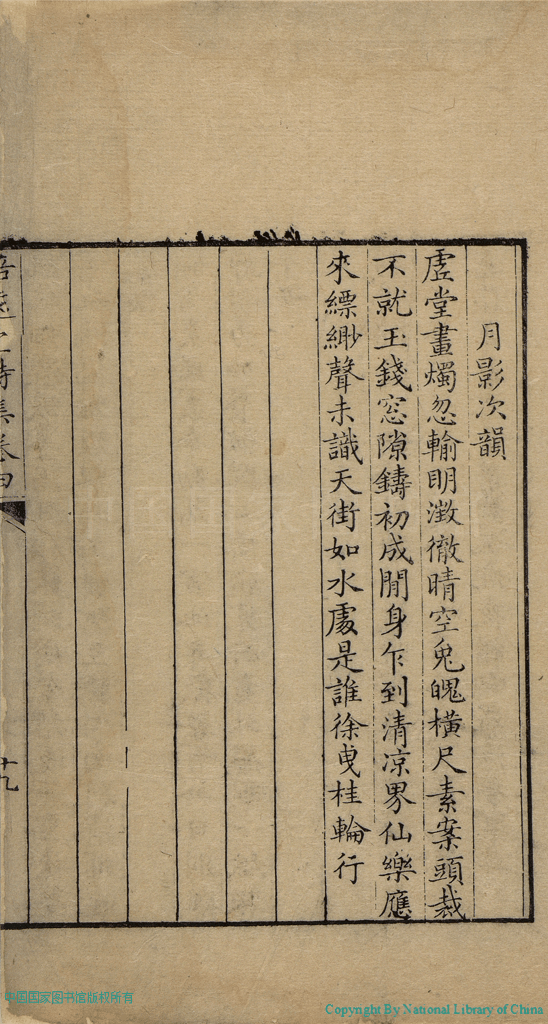 月影次韻
虗堂畫燭忽輸明澂徹晴空兔魄橫尺素案頭裁
不就玉錢窓隙鑄初成閒身乍到清凉界仙樂應
來縹緲聲未識天街如水處是誰徐曳桂輪行
詩集卷四
十九
中国国家图书馆版权所有
Copyright By National Library of China